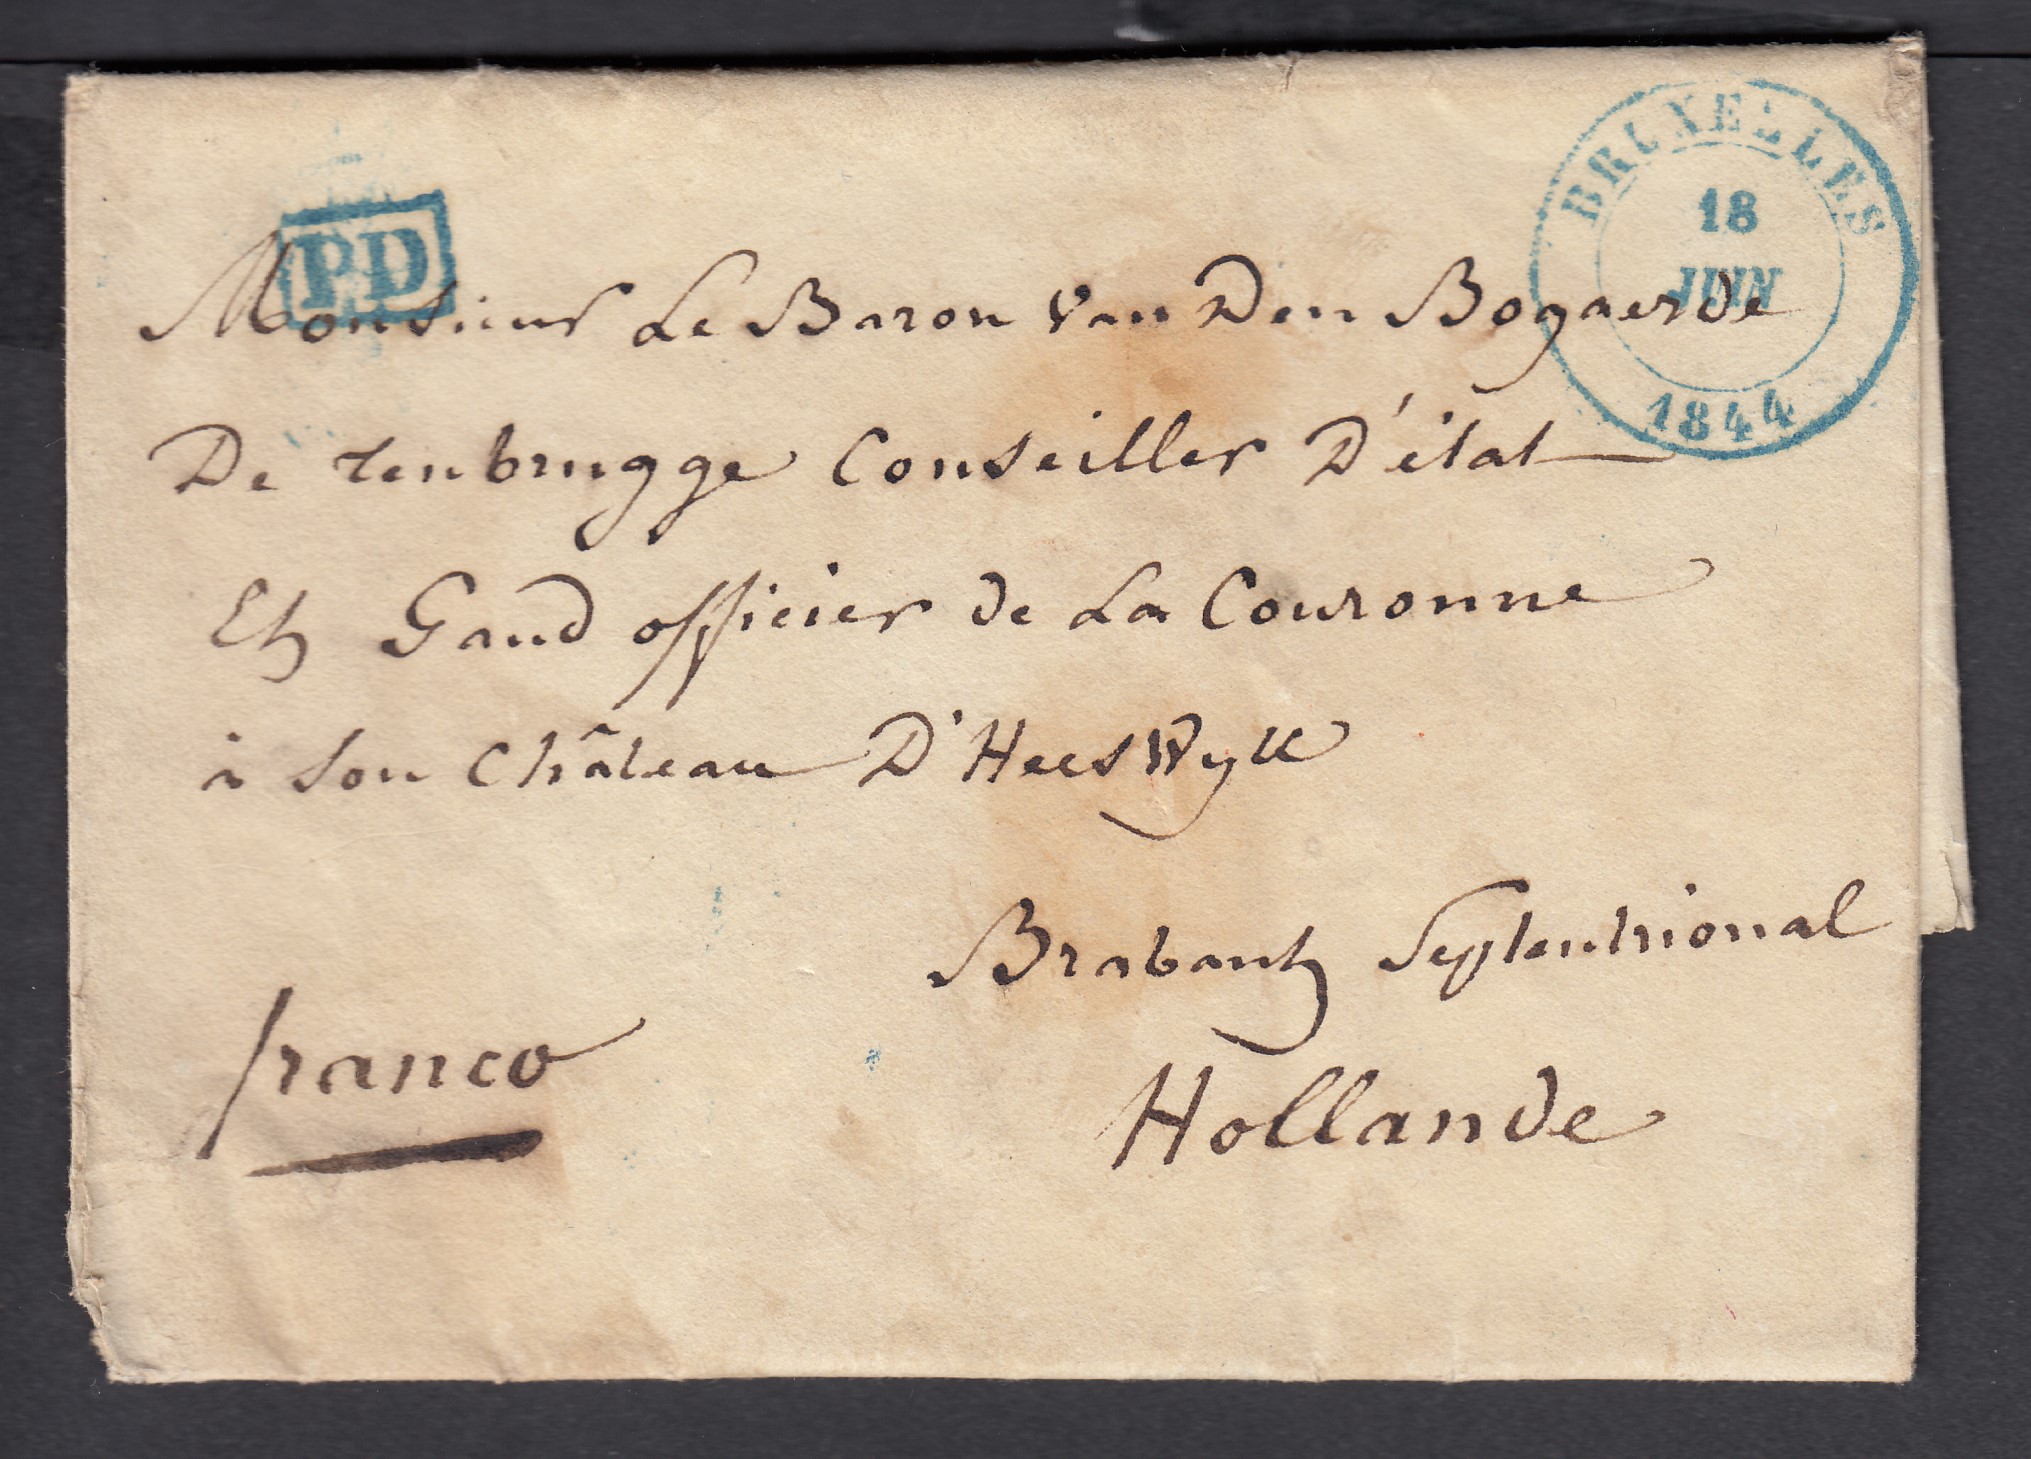 BRUXELLES
18
JUIN
1844
PD
Monsieur Le Baron Van Den Bogaerde
De tenbrugge Conseiller D'état
Et Gand officier de La Couronne
à Son Château D'HeesWyk
Brabant Septentrional
franco
Hollande